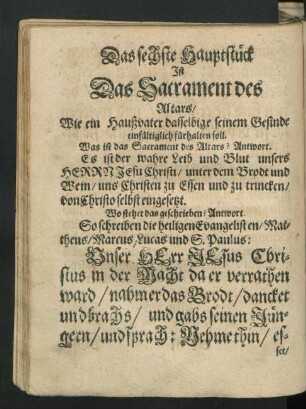 Das sechste Hauptstück
Ist
Das Sacrament des
Altars/
Wie ein Haußvater dasselbige seinem Gesinde
einfältiglich fürhalten soll.
Was ist das Sacrament des Altars? Antwort.
Es ist der wahre Leib und Blut unsers
HERRN JEsu Christi/ unter dem Brodt und
Wein/ uns Christen zu Essen und zu trincken/
von Christo selbst eingesetzt.
Wo stehet das geschrieben? Antwort.
So schreiben die heiligen Evangelisten/ Mat-
theus/ Marcus/ Lucas und S. Paulus:
Unser HErr JEsus Chri-
stus in der Nacht da er verrathen
ward/ nahm er das Brodt/ dancket
und brachs/ und gabs seinen Jün-
gern/ und sprach: Nehmet hin/ es-
set/